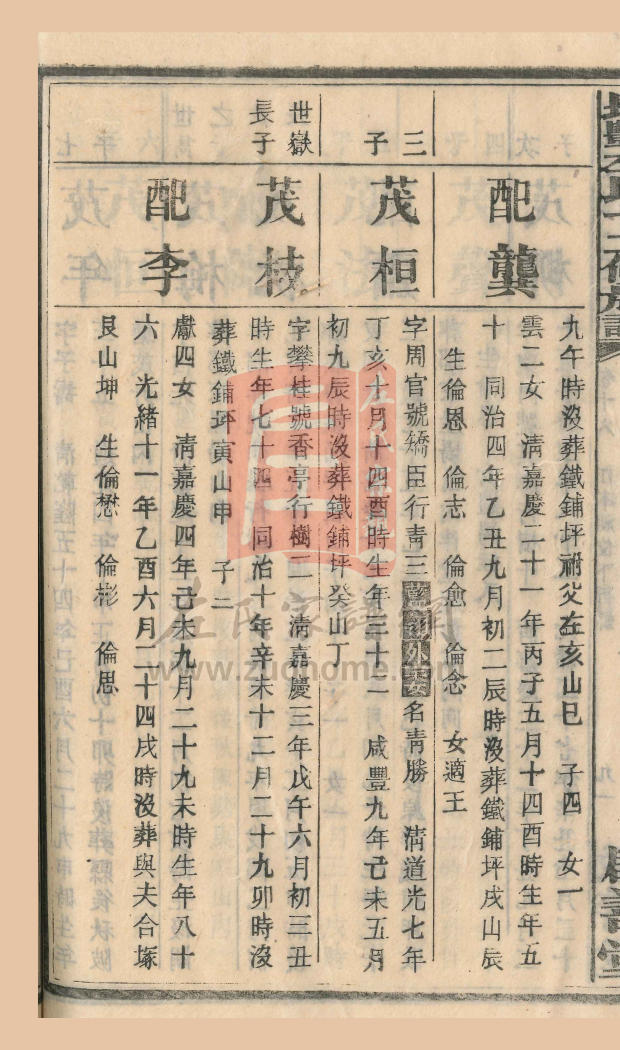 九午時沒葬鐵鋪坪祔父左亥山巳 子四 女一
配龔
雲二女 清嘉慶二十一年丙子五月十四酉時生年五
十 同治四年乙丑九月初二辰時沒葬鐵鋪坪戌山辰
生倫恩 倫志 倫愈 倫念 女適王
三子
茂桓
字周官號矯臣行青三藍翎外委名青勝 清道光七年
丁亥十月十四酉時生年三十二 咸豐九年己未五月
初九辰時沒葬鐵鋪坪癸山丁
世嶽長子
茂枝
字攀桂號香亭行樹二 清嘉慶三年戊午六月初三丑
時生年七十四 同治十年辛未十二月二十九卯時沒
葬鐵鋪坪寅山申 子二
配李
獻四女 清嘉慶四年己未九月二十九未時生年八十
六 光緒十一年乙酉六月二十四戌時沒葬與夫合塚
艮山坤 生倫懋 倫彬 倫思
左氏家譜網
www.zuohome.com